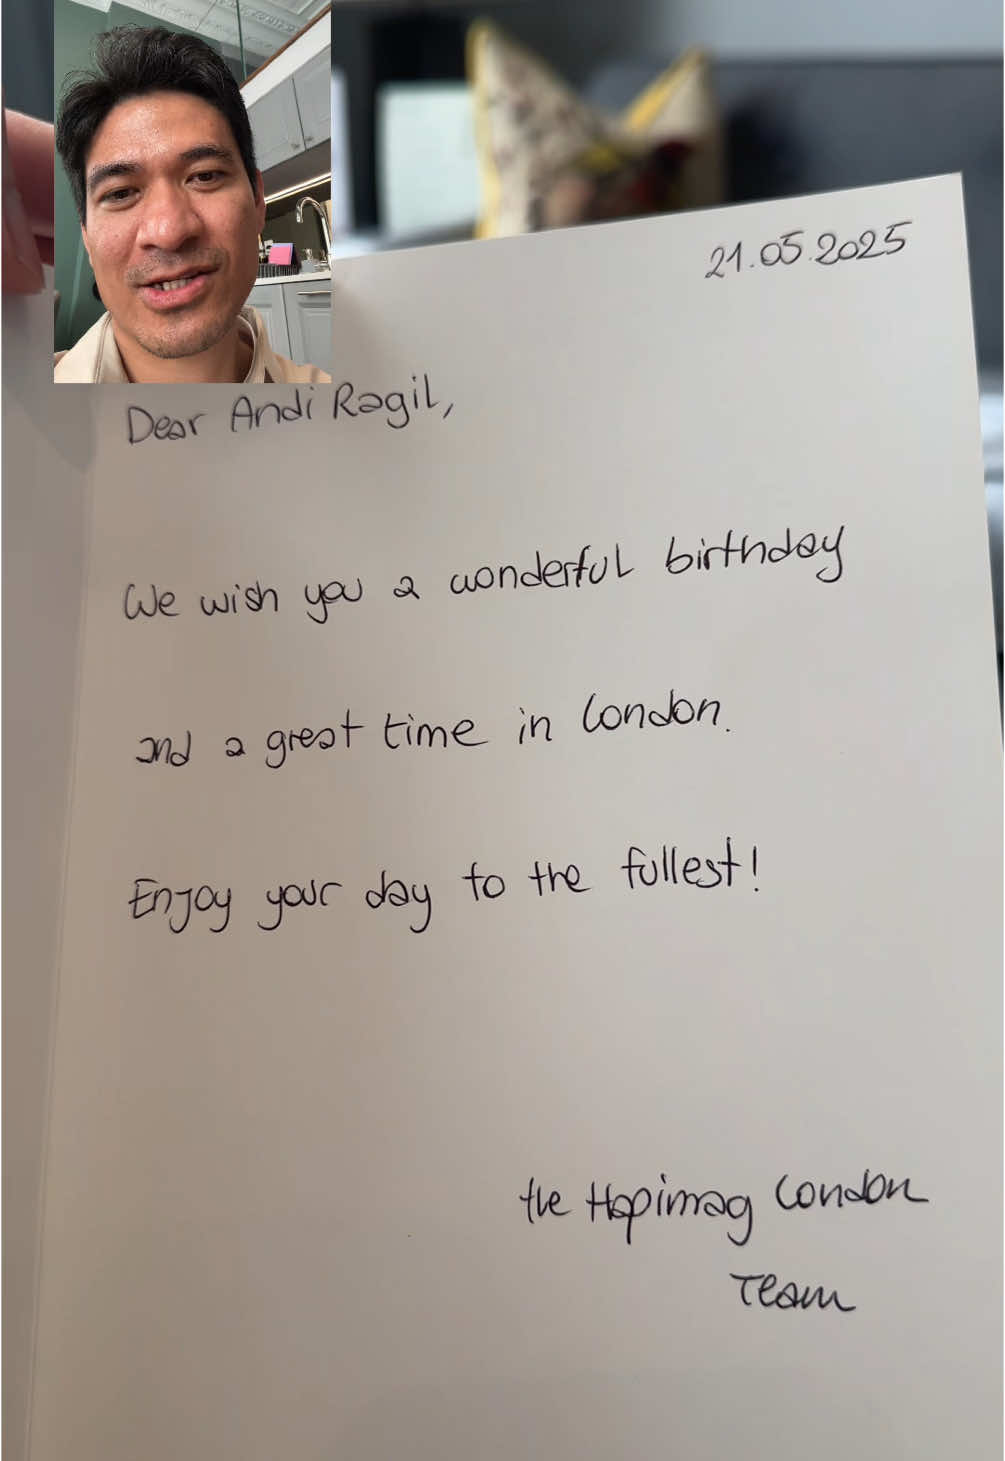 21.05.2025
Dear Andi Ragil,
We wish you a wonderful birthday
and a great time in London.
Enjoy your day to the fullest!
the Hapimag London
Team